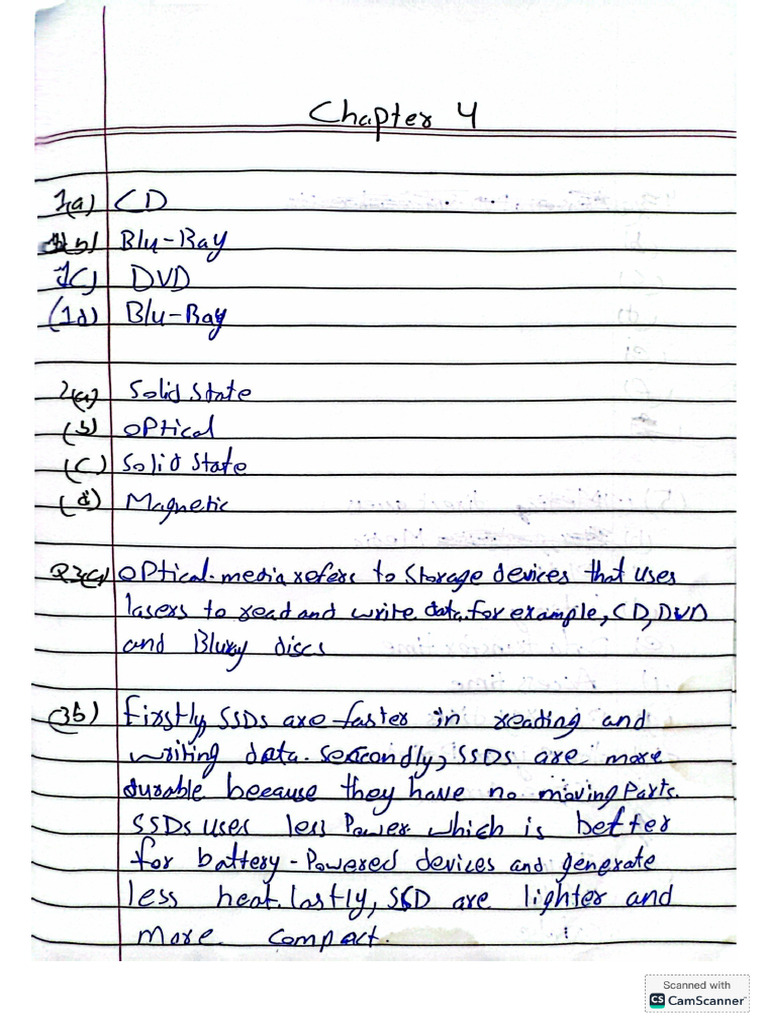 Chapter 4
1(a) CD
1b) Blu-Ray
1C) DVD
(1d) Blu-Ray
2(a) Solid State
(b) OPtical
(C) Solid State
(d) Magnetic
Q3(a) OPtical media refers to Storage devices that uses
lasers to read and write data. for example, CD, DVD
and Bluray discs
(3b) Firstly, SSDs are faster in reading and
writing data. Secondly, SSDs are more
durable because they have no moving Parts.
SSDs uses less Power which is better
for battery-Powered devices and generate
less heat. lastly, SSD are lighter and
more compact.
Scanned with
CS CamScanner